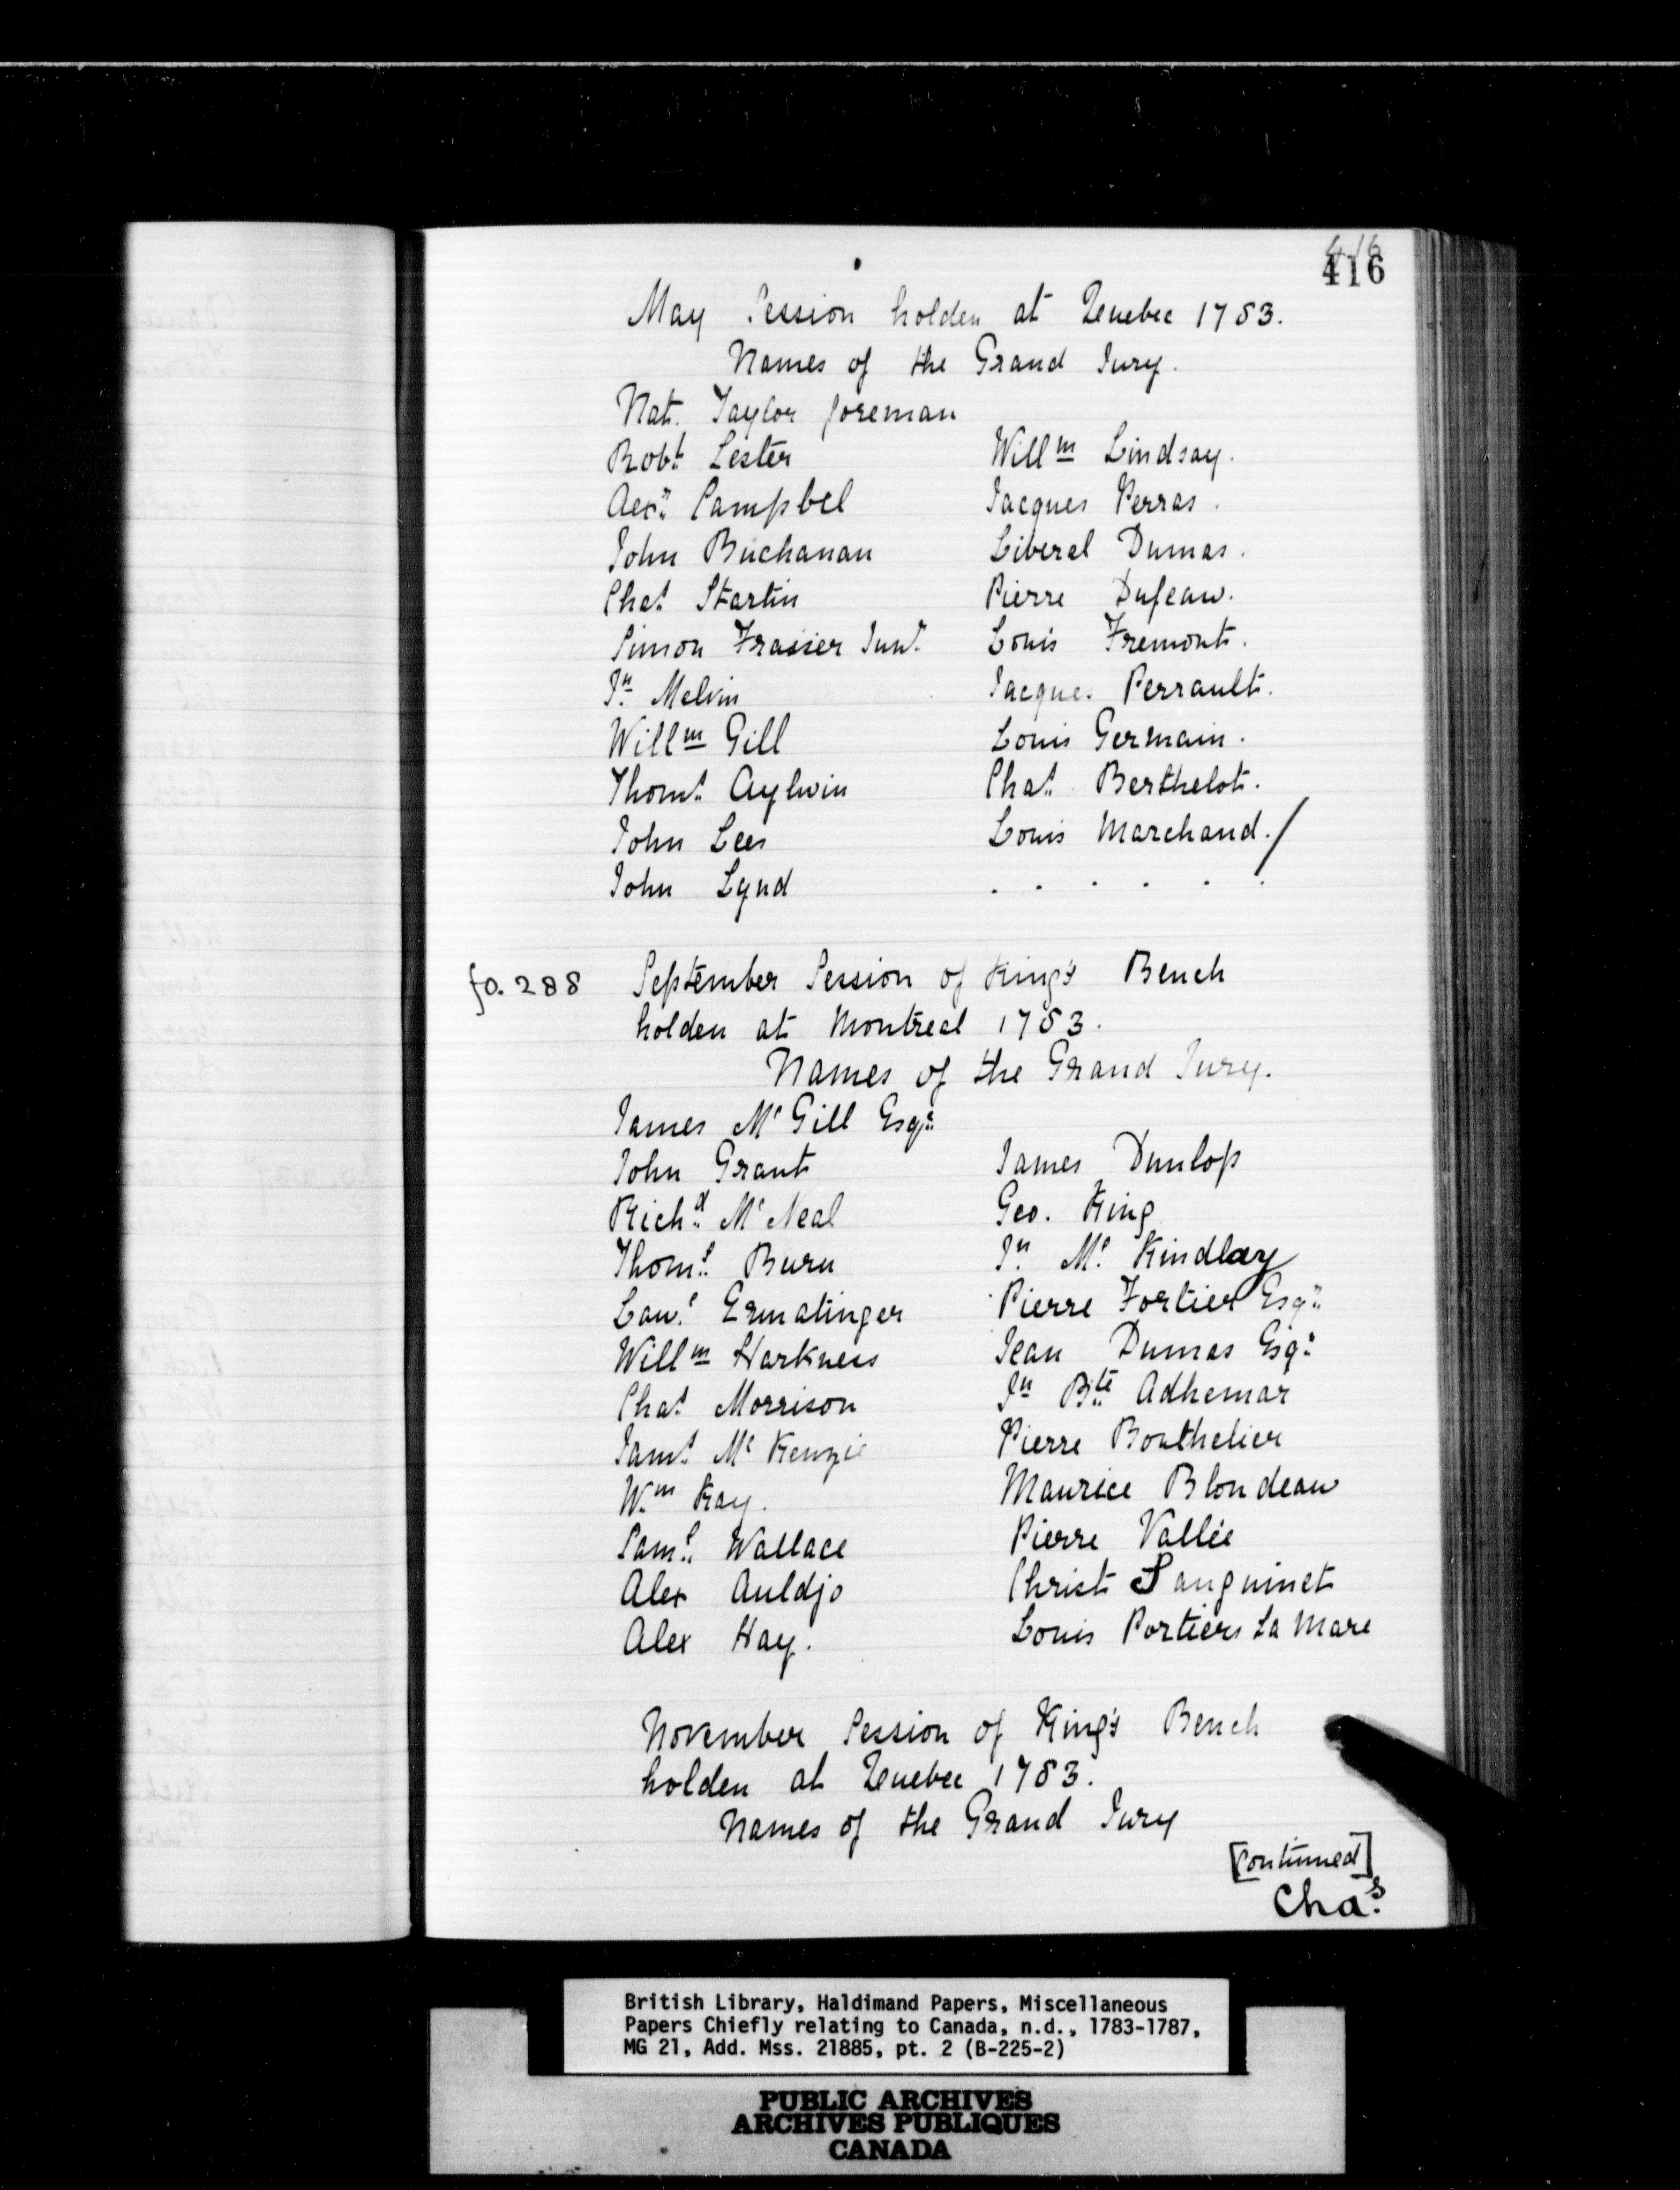 416
416
May Session holden at Quebec 1783.
Names of the Grand Jury.
Nat. Taylor foreman
Robt Lester Willm Lindsay.
Aexr Campbel Jacques Perras.
John Buchanan Liberal Dumas.
Chas Startin Pierre Dufeau.
Simon Frasier Junr Louis Fremont.
Jn Melvin Jacques Perrault.
Willm Gill Louis Germain.
Thoms Aylwin Chas Berthelot.
John Lees Louis Marchand./
John Lynd . . . . . .
fo. 288 September Session of King's Bench
holden at Montreal 1783.
Names of the Grand Jury.
James Mc Gill Esqr
John Grant James Dunlop
Richd Mc Neal Geo. King
Thoms Burn Jn Mc Kindlay
Lawe Ermatinger Pierre Fortier Esqr
Willm Harkness Jean Dumas Esqr
Chas Morrison Jn Bte Adhemar
Jams Mc Kenzie Pierre Bouthelier
Wm Kay. Maurice Blondeau
Saml Wallace Pierre Vallée
Alex Auldjo Christ Sanguinet
Alex Hay. Louis Portiers La Mare
November Session of King's Bench
holden at Quebec 1783.
Names of the Grand Jury
[Continued]
Chas
British Library, Haldimand Papers, Miscellaneous
Papers Chiefly relating to Canada, n.d., 1783-1787,
MG 21, Add. Mss. 21885, pt. 2 (B-225-2)
PUBLIC ARCHIVES
ARCHIVES PUBLIQUES
CANADA